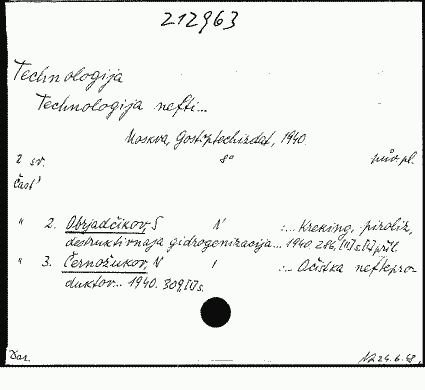 212963
Technologija
Technologija nefti...
Moskva, Gostoptechizdat, 1940.
2 sv. 8° pův. pl.
Čast'
" 2. Obrjadčikov, S N :... Kreking, piroliz,
destruktivnaja gidrogenizacija... 1940 286,[II]s.[I] příl.
" 3. Černožukov, N I :... Očistka neftepro-
duktov... 1940. 309,[I]s.
Dar. 24.6.48.